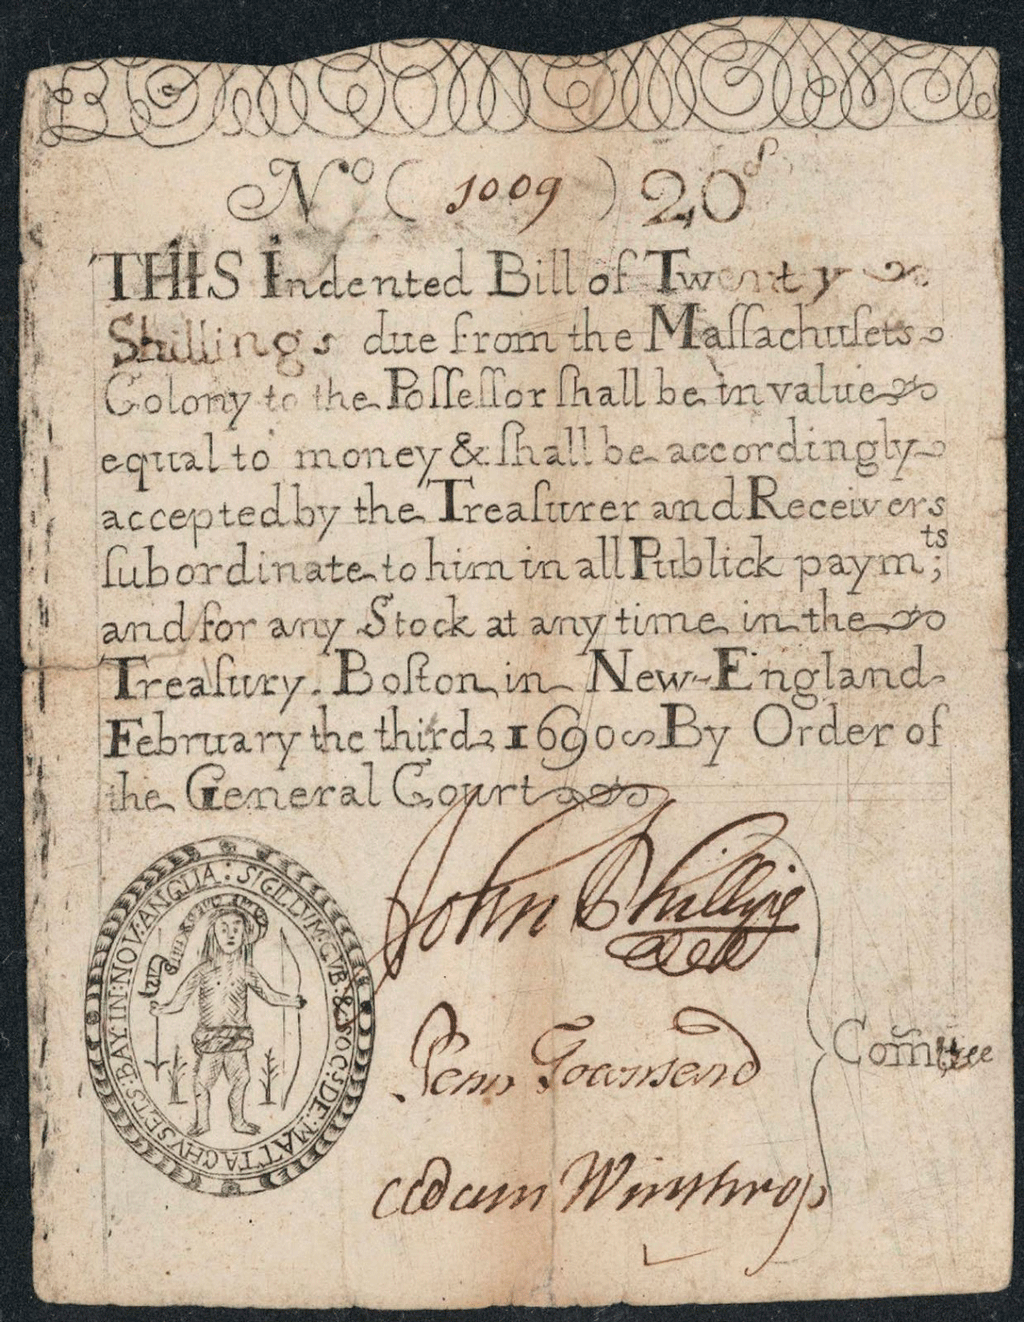 No ( 1009 ) 20s
THIS Indented Bill of Twenty
Shillings due from the Maſſachuſets
Colony to the Poſſeſſor ſhall be in value
equal to money & ſhall be accordingly
accepted by the Treaſurer and Receivers
ſubordinate to him in all Publick paymts;
and for any Stock at any time in the
Treaſury. Boſton in New-England
February the third 1690 By Order of
the General Court
SIGILLVM: GVB: & SOC: DE: MATTACHVSETS: BAY: IN: NOV: ANGLIA:
John Phillips
Penn Townsend
Adam Winthrop
Com̃tee